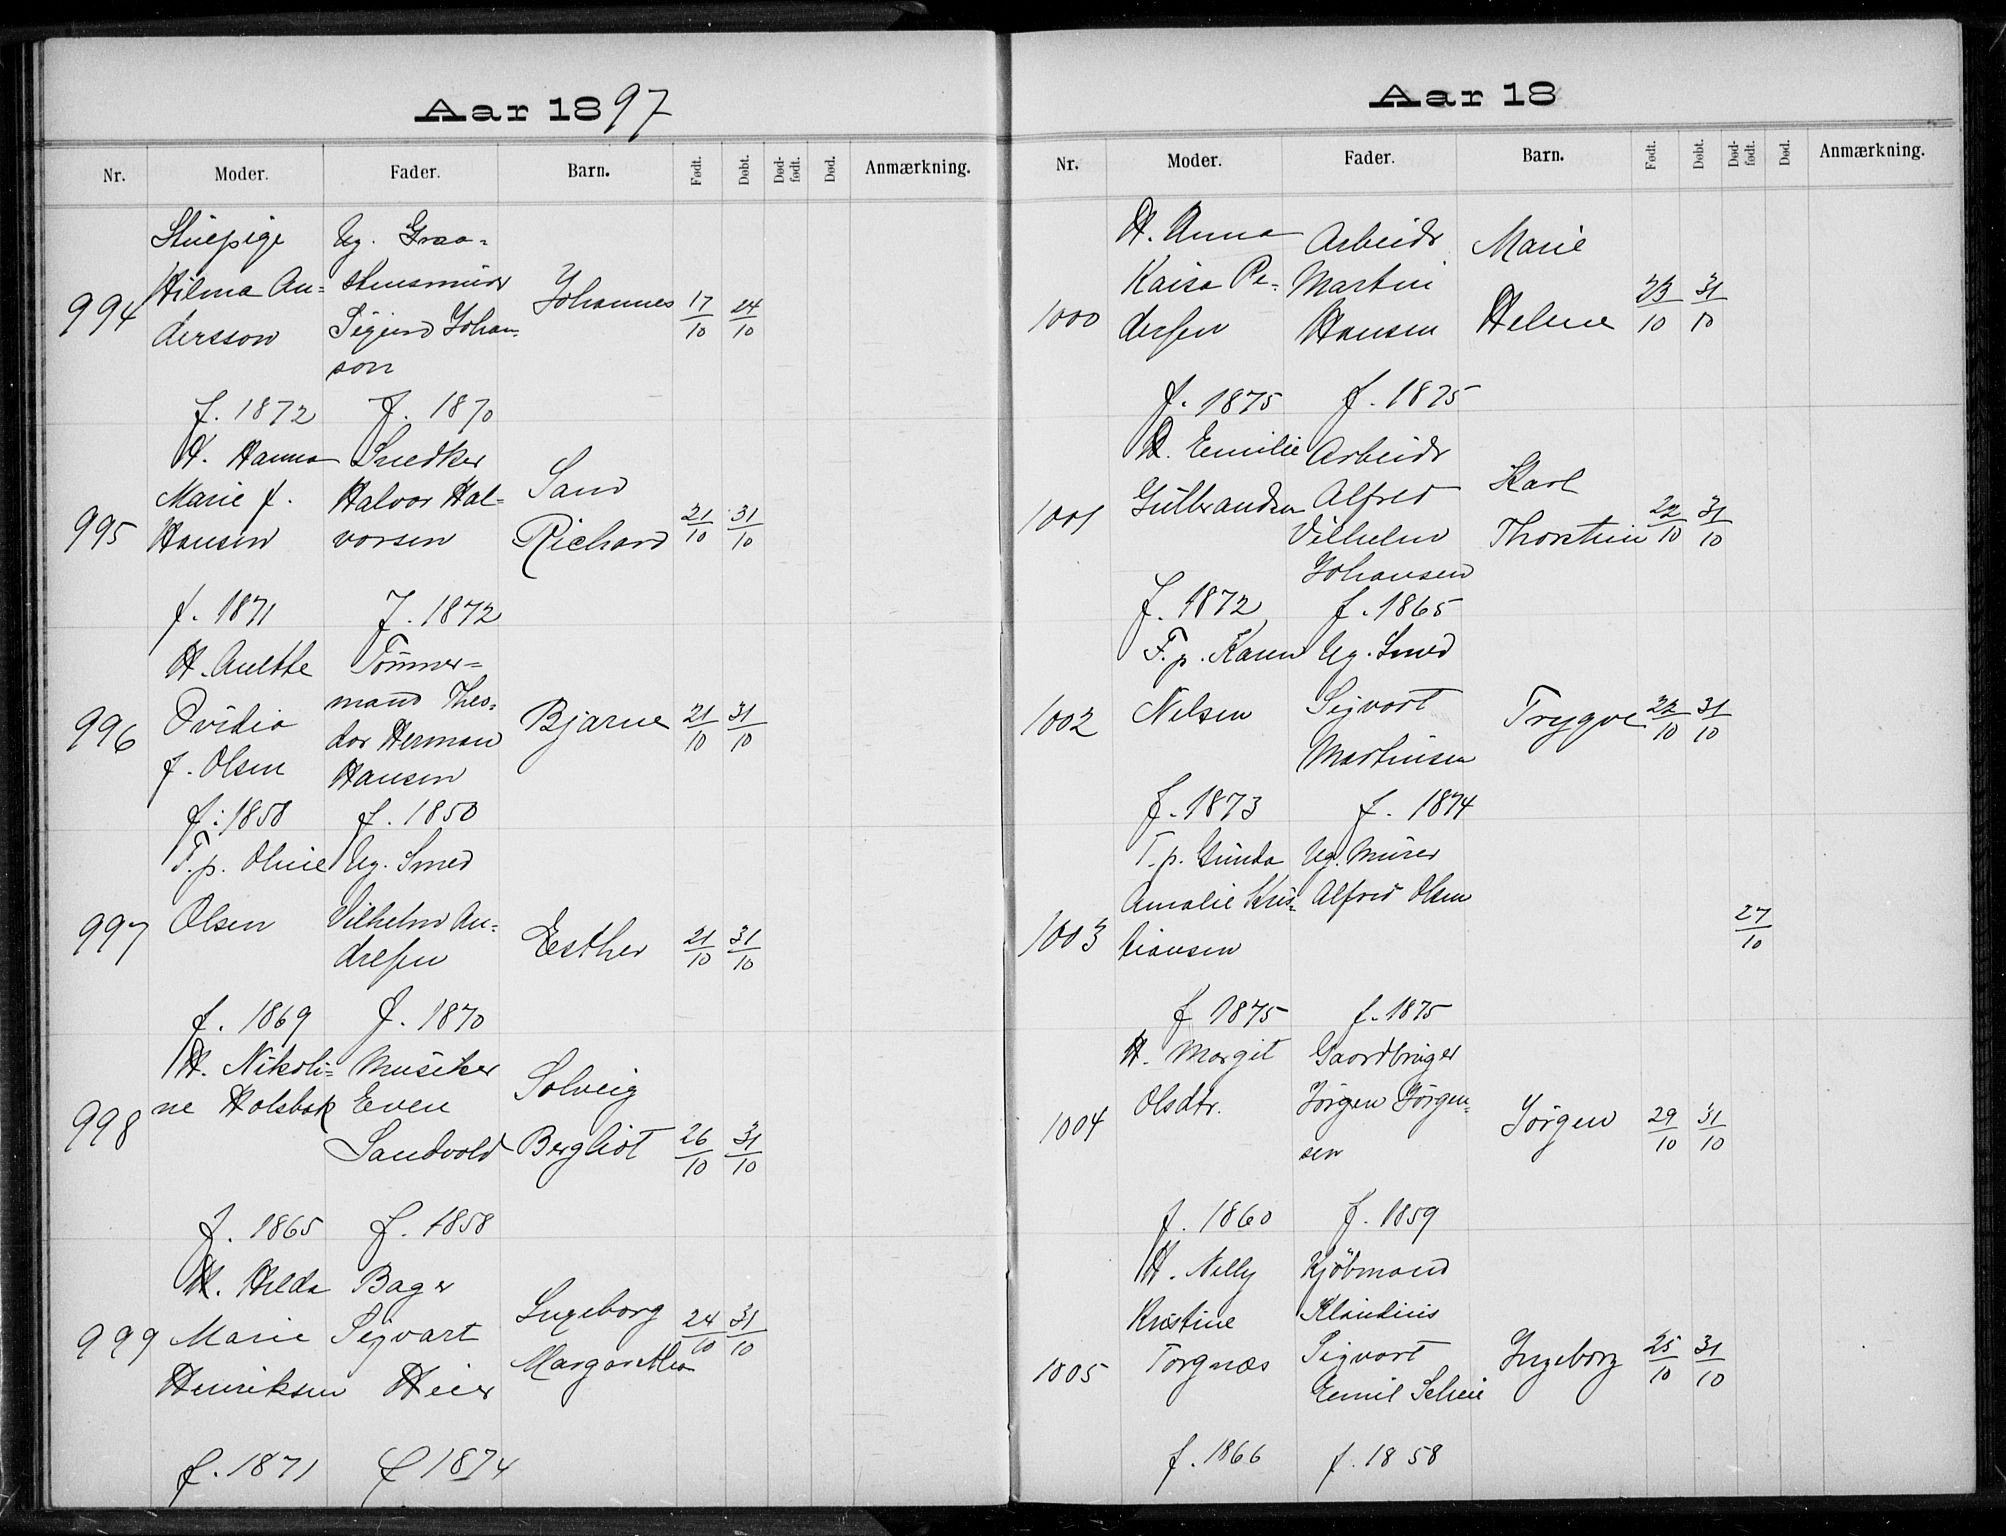 Aar 1897
Nr. Moder. Fader. Barn. Født. Døbt. Død-født. Død. Anmærkning.
994
Stuepige
Hilma An-
dersson
f. 1872
Ug. Graa-
stensmurer
Sigurd Johan-
son
f. 1870
Johannes
17/10 24/10
995
H. Hanna
Marie f.
Hansen
f. 1871
Snedker
Halvor Hal-
vorsen
f. 1872
Sam
Richard
21/10 31/10
996
H. Anette
Ovidia
f. Olsen
f. 1858
Tømmer-
mand Theo-
dor Herman
Hansen
f. 1850
Bjarne
21/10 31/10
997
F.p. Oline
Olsen
f. 1869
Ug. Smed
Vilhelm An-
dresen
f. 1870
Esther
21/10 31/10
998
H. Nikoli-
ne Holsbak
f. 1865
Musiker
Even
Sandvold
f. 1858
Solveig
Bergliot
26/10 31/10
999
H. Hilda
Marie
Henriksen
f. 1871
Bager
Sigvart
Heier
f 1874
Ingeborg
Margarethe
24/10 31/10
Aar 18
Nr. Moder. Fader. Barn. Født. Døbt. Død-født. Død. Anmærkning.
1000
H. Anna
Kaisa Pe-
dersen
f. 1875
Arbeidr
Martin
Hansen
f. 1875
Marie
Helene
23/10 31/10
1001
H. Emilie
Gulbrandsen
f. 1872
Arbeidr
Alfred
Vilhelm
Johansen
f. 1865
Karl
Thorstein
22/10 31/10
1002
F.p. Karen
Nelsen
f. 1873
Ug. Smed
Sigvart
Martinsen
f. 1874
Trygve
22/10 31/10
1003
F.p. Gunda
Amalie Kris-
tiansen
f 1875
Ug. Murer
Alfred Olsen
f. 1875
27/10
1004
H. Margit
Olsdtr.
f. 1860
Gaardbruger
Jørgen Jørgen-
sen
f. 1859
Jørgen
29/10 31/10
1005
H. Nelly
Kristine
Torgnæs
f. 1866
Kjøbmand
Klaudius
Sigvart
Emil Scheie
f. 1858
Ingeborg
25/10 31/10